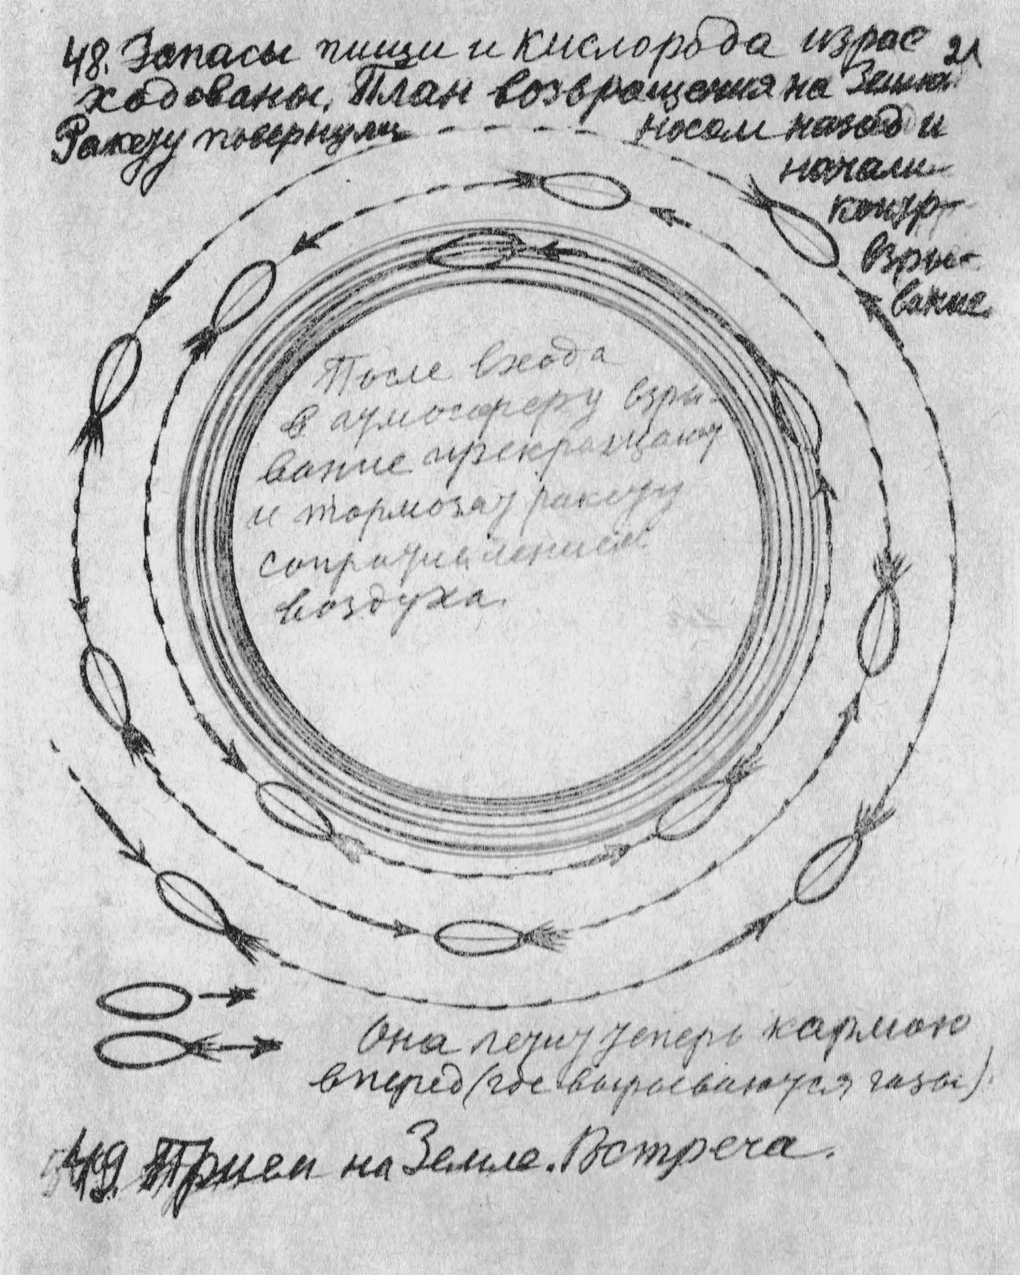 48. Запасы пищи и кислорода израс
21
ходованы. План возвращения на Землю
Ракету повернули носом назад и
начали
контр-
взры-
вание.
После входа
в атмосферу взры-
вание прекращают
и тормозят ракету
сопротивлением
воздуха.
Она летит теперь кармою
вперед (где вырываются газы).
49. Прием на Земле. Встреча.